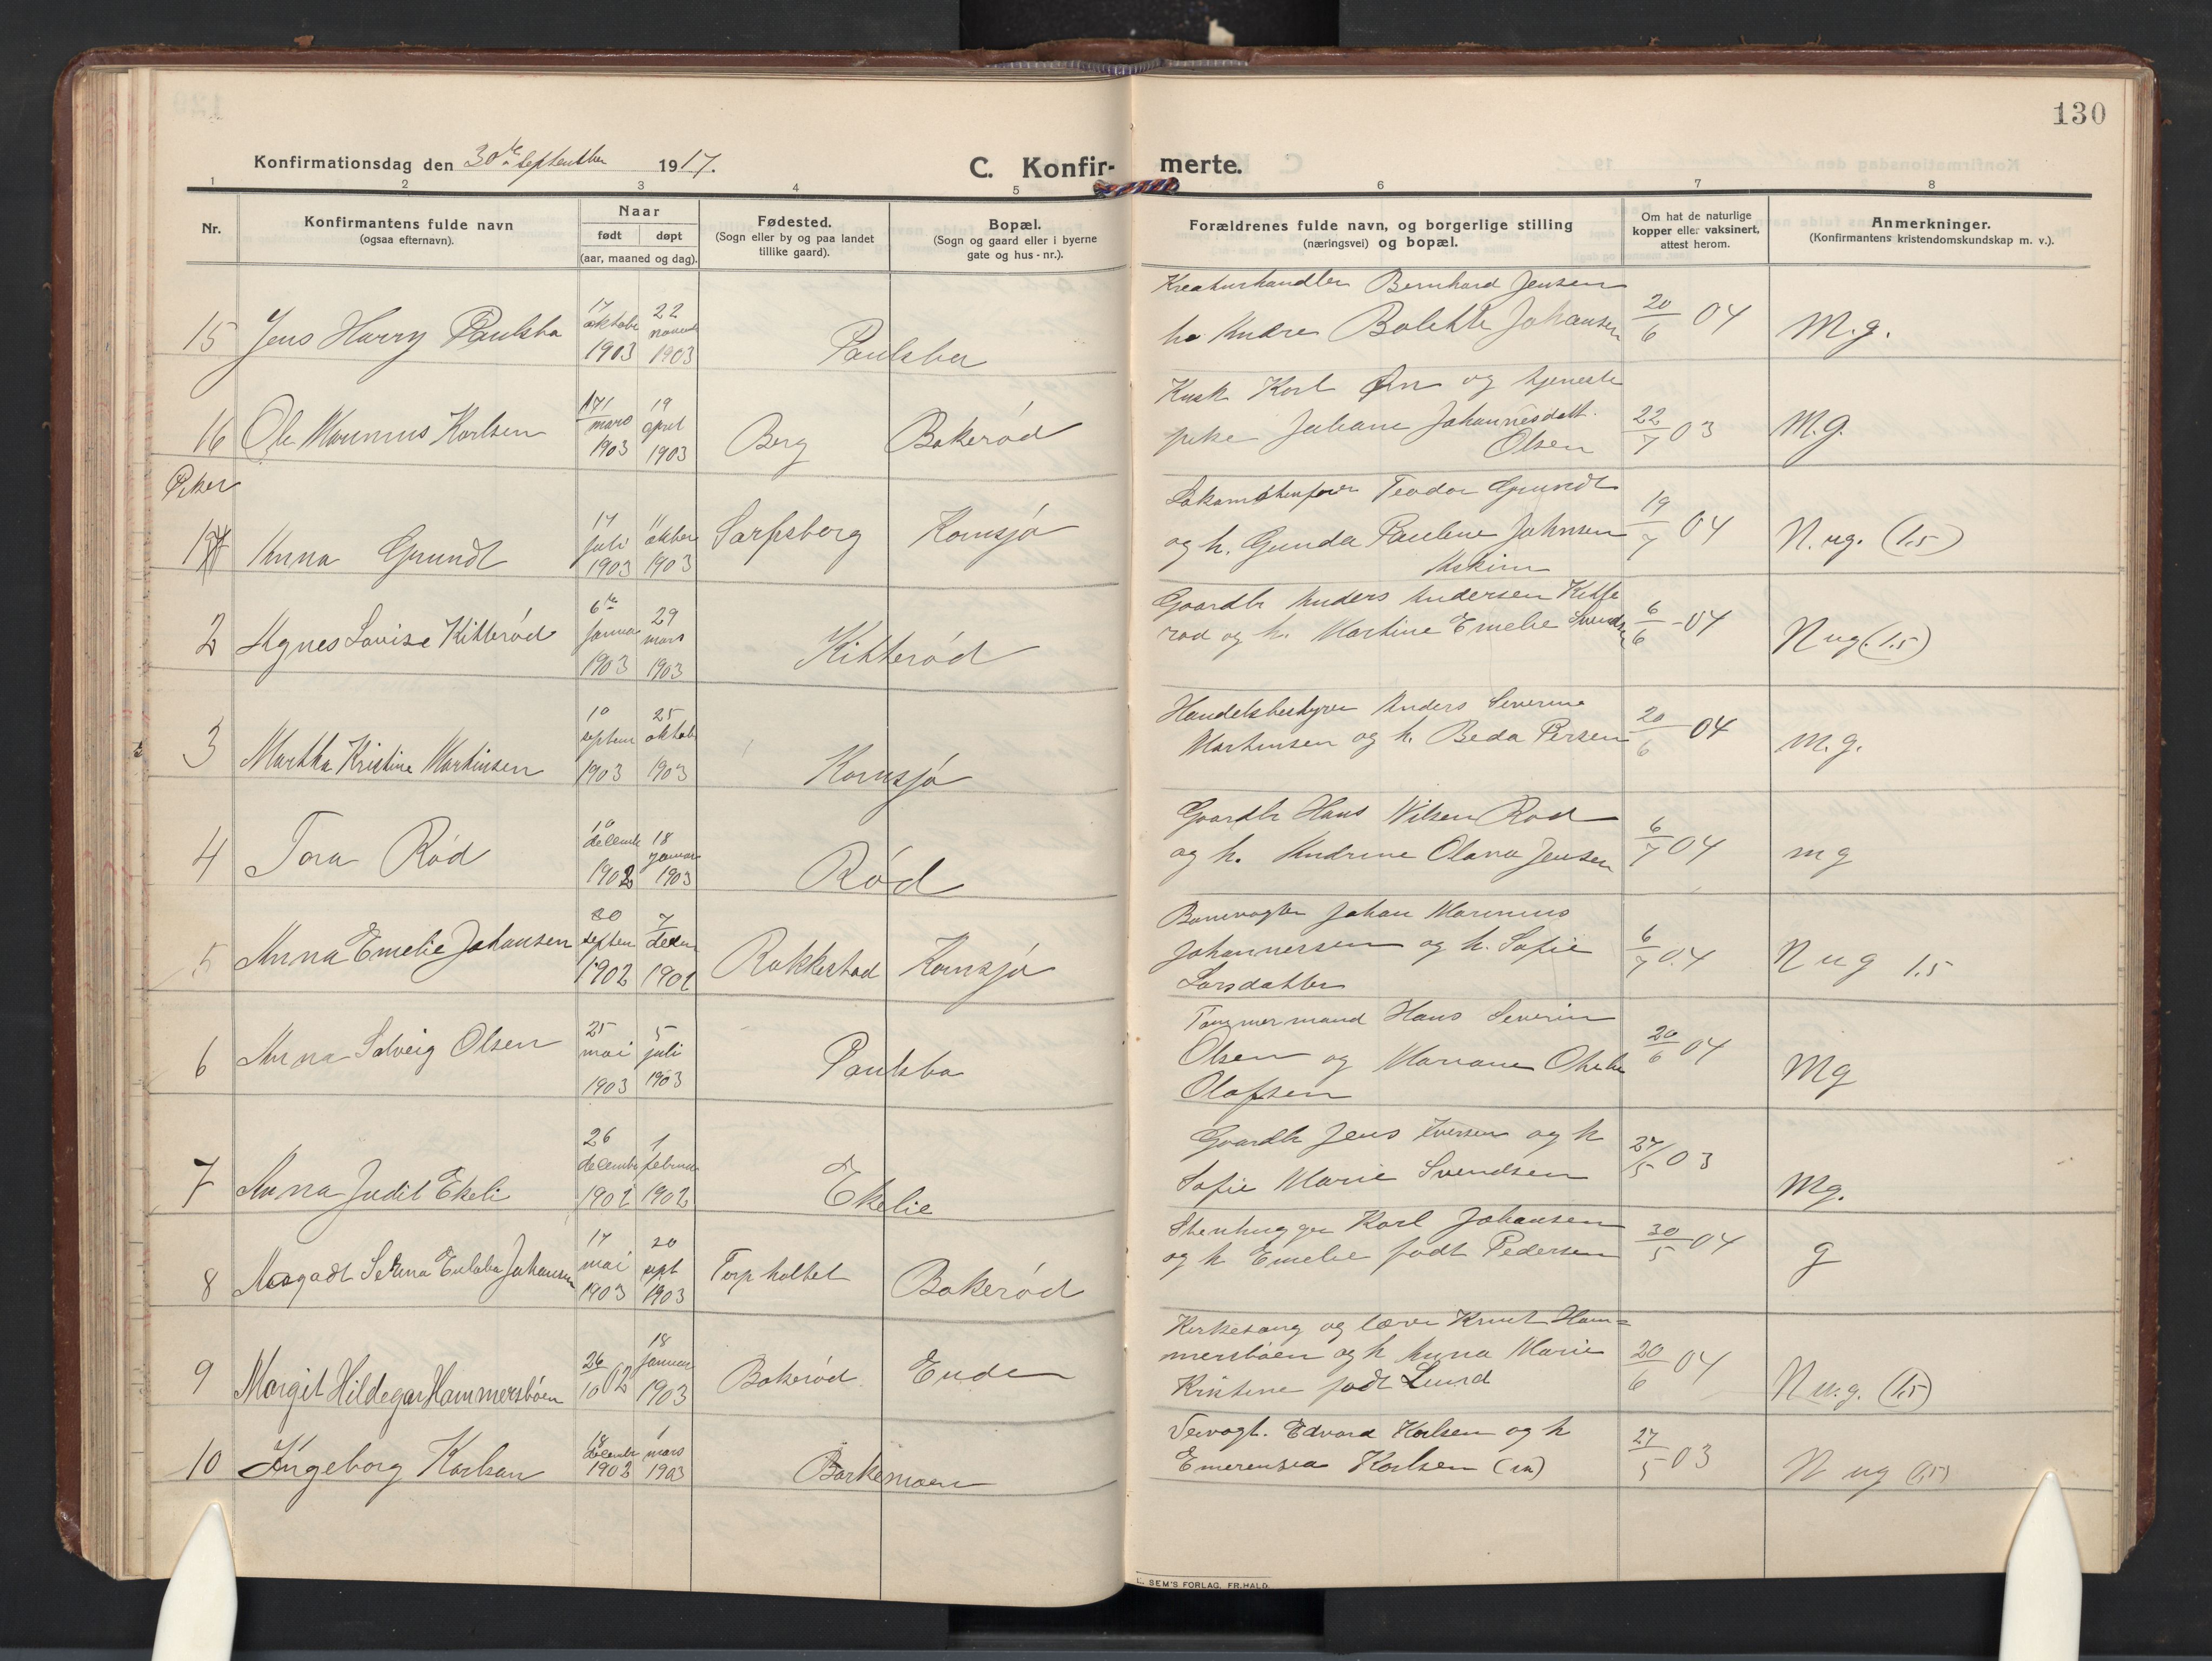 130
Konfirmationsdag den 30te september 1917.
C. Konfir- merte.
1 2 3 4 5 6 7 8
Nr.
Konfirmantens fulde navn
(ogsaa efternavn).
Naar
født døpt
(aar, maaned og dag).
Fødested.
(Sogn eller by og paa landet
tillike gaard).
Bopæl.
(Sogn og gaard eller i byerne
gate og hus-nr.).
Forældrenes fulde navn, og borgerlige stilling
(næringsvei) og bopæl.
Om hat de naturlige
kopper eller vaksinert,
attest herom.
Anmerkninger.
(Konfirmantens kristendomskundskap m. v.).
15 Jens Harry Paulsbo
17 oktobe 1903
22 novemb 1903
Paulsbo
Kreaturhandler Bernhard Jensen
Andrea Bolette Johansen
20/6 04
M.g.
16 Ole Marinus Karlsen
17 mars 1903
19 april 1903
Berg
Bakerød
Kusk Karl Øn og tjeneste
pike Juliane Johannesdatt.
Olsen
22/7 03
M.g.
Piker
1 Anna Grundt
17 juli 1903
11 oktober 1903
Sarpsborg
Kornsjø
Lokomotivfører Teodor Grundt
og h. Gunda Pauline Johnsen
Askim
19/7 04
N.ug. (1.5)
2 Agnes Lovise Kitterød
6te januar 1903
29 mars 1903
Kitterød
Gaardbr Anders Andersen Kitte
rød og h. Martine Emelie Svendsen
6/6 -04
N ug (1.5)
3 Martha Kristine Martinsen
10 septem 1903
25 oktob 1903
Kornsjø
Handelsbestyrer Anders Severine
Martinsen og h. Beda Persen
20/6 04
m.g.
4 Tora Rød
10 decemb 1902
18 januar 1903
Rød
Gaardbr Hans Nilsen Rød
og h. Andrine Olava Jensen
6/7 04
mg
5 Anna Emelie Johansen
30 septem 1902
7 decem 1902
Rakkestad
Kornsjø
Banevogter Johan Marinius
Johannersen og h. Sofie
Larsdatter
6/7 04
N ug 1.5
6 Anna Solveig Olsen
25 mai 1903
5 juli 1903
Paulsbo
Tømmermand Hans Severin
Olsen og Mariane
Olafsen
20/6 04
Mg
7 Anna Judit Ekeli
26 decembe 1902
1 februar 1902
Ekelie
Gaardbr Jens Iversen og h
Sofie Marie Svendsen
27/5 03
Mg.
8 Margadt Selma Eulaba Johansen
17 mai 1903
20 sept 1903
Torpholtet
Bakerød
Stenhugger Karl Johansen
og h Emelie født Pedersen
30/5 04
g
9 Margit Hildegar Hammersbøen
26/10 02
18 januar 1903
Bakerød
Ende
Kirkesang og lærer Knut Ham=
mersbøen og h Anna Marie
Kristine født Lund
20/6 04
N u.g. (1.5)
10 Ingeborg Karlsen
18 decembr 1902
1 mars 1903
Barkemoen
Veivogt. Edvard Karlsen og h
Emerensea Karlsen
27/5 03
N ug (1.5)
E. SEM'S FORLAG, FR.HALD.